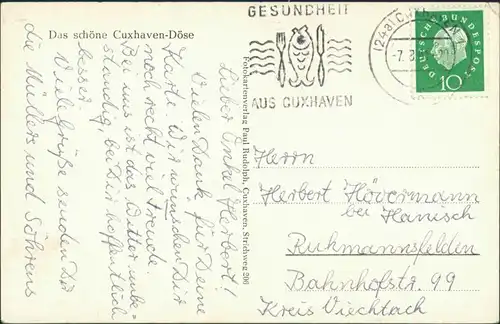 Das schöne Cuxhaven-Döse
Lieber Onkel Herbert!
Vielen Dank für Deine
Karte. Wir wünschen Dir
noch recht viel Freude.
Bei uns ist das Wetter unbe-
ständig, bei Dir hoffentlich
besser.
Viele Grüße senden Dir
die Müllers und Söhrens
Fotokartenverlag Paul Rudolph, Cuxhaven, Strichweg 200
GESUNDHEIT
AUS CUXHAVEN
(24a) CUXHAVEN
-7. 8.
DEUTSCHE BUNDESPOST
10
Herrn
Herbert Hövermann
bei Hanisch
Ruhmannsfelden
Bahnhofstr. 99
Kreis Viechtach